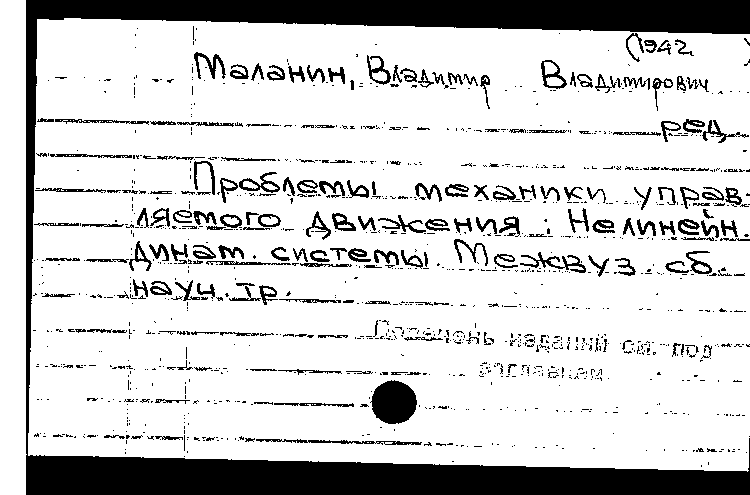 (1942 )
Маланин, Владимир Владимирович
ред
Проблемы механики управ-
ляемого движения : Нелинейн.
динам. системы. Межвуз. сб.
науч. тр.
Перечень изданий см. под
заглавием